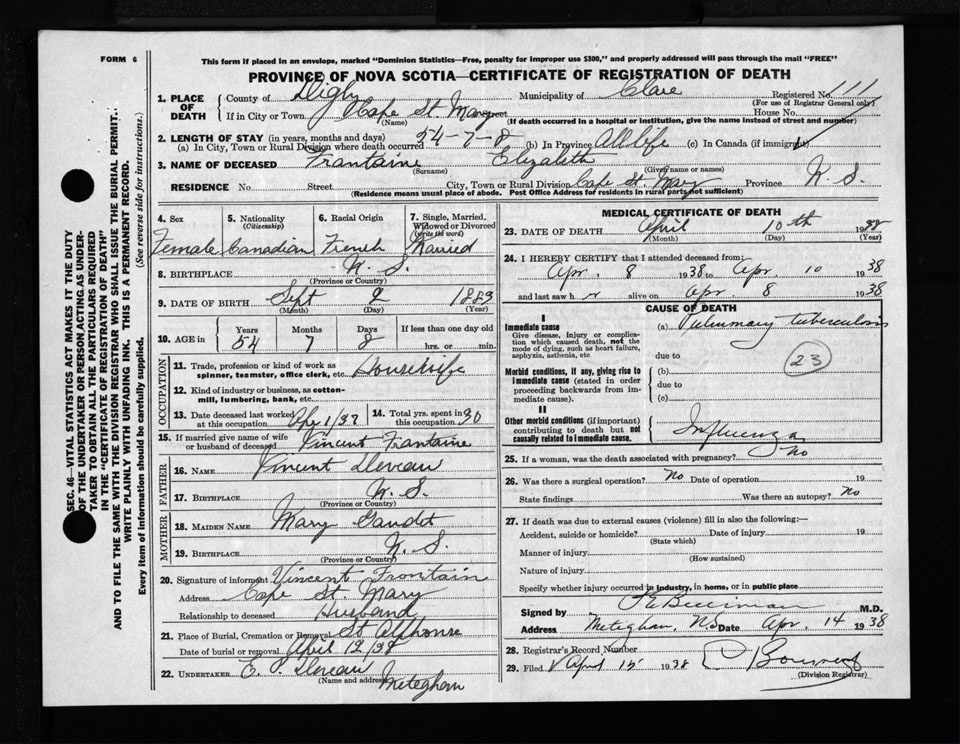 FORM 6
This form if placed in an envelope, marked "Dominion Statistics—Free, penalty for improper use $300," and properly addressed will pass through the mail "FREE"
PROVINCE OF NOVA SCOTIA—CERTIFICATE OF REGISTRATION OF DEATH
1. PLACE OF DEATH
County of Digby Municipality of Clare Registered No. 111
(For use of Registrar General only)
If in City or Town Cape St. Mary Street House No.
(Name) (If death occurred in a hospital or institution, give the name instead of street and number)
2. LENGTH OF STAY (in years, months and days)
(a) In City, Town or Rural Division where death occurred 54-7-8 (b) In Province All life (c) In Canada (if immigrant)
3. NAME OF DECEASED Frantaine Elizabeth
(Surname) (Given name or names)
RESIDENCE No. Street City, Town or Rural Division Cape St. Mary Province N. S.
(Residence means usual place of abode. Post Office Address for residents in rural parts not sufficient)
4. Sex 5. Nationality (Citizenship) 6. Racial Origin 7. Single, Married, Widowed or Divorced (write the word)
Female Canadian French Married
8. BIRTHPLACE N. S.
(Province or Country)
9. DATE OF BIRTH Sept 2 1883
(Month) (Day) (Year)
10. AGE in Years Months Days If less than one day old
54 7 8 hrs. or min.
OCCUPATION
11. Trade, profession or kind of work as spinner, teamster, office clerk, etc. Housewife
12. Kind of industry or business, as cotton-mill, lumbering, bank, etc.
13. Date deceased last worked at this occupation Apr 1/37 14. Total yrs. spent in this occupation 30
15. If married give name of wife or husband of deceased Vincent Frantaine
FATHER
16. NAME Vincent Deveau
17. BIRTHPLACE N. S.
(Province or Country)
MOTHER
18. MAIDEN NAME Mary Gaudet
19. BIRTHPLACE N. S.
(Province or Country)
20. Signature of informant Vincent Frontain
Address Cape St. Mary
Relationship to deceased Husband
21. Place of Burial, Cremation or Removal St Alphonse
Date of burial or removal April 12/38
22. UNDERTAKER E. P. Deveau
(Name and address) Meteghan
MEDICAL CERTIFICATE OF DEATH
23. DATE OF DEATH April 10th 1938
(Month) (Day) (Year)
24. I HEREBY CERTIFY that I attended deceased from:
Apr. 8 1938 to Apr. 10 1938
and last saw her alive on Apr. 8 1938
CAUSE OF DEATH
I
Immediate cause
Give disease, injury or complication which caused death, not the mode of dying, such as heart failure, asphyxia, asthenia, etc
(a) Pulmonary tuberculosis
due to
23
Morbid conditions, if any, giving rise to immediate cause (stated in order proceeding backwards from immediate cause).
(b)
due to
(c)
II
Other morbid conditions (if important) contributing to death but not causally related to immediate cause.
Influenza
25. If a woman, was the death associated with pregnancy? no
26. Was there a surgical operation? No Date of operation 19
State findings Was there an autopsy? No
27. If death was due to external causes (violence) fill in also the following:—
Accident, suicide or homicide? Date of injury 19
(State which)
Manner of injury
(How sustained)
Nature of injury
Specify whether injury occurred in industry, in home, or in public place
Signed by M.D.
Address Meteghan, N.S. Date Apr. 14 1938
28. Registrar's Record Number
29. Filed April 15 1938
(Division Registrar)
SEC. 46—VITAL STATISTICS ACT MAKES IT THE DUTY
OF THE UNDERTAKER OR PERSON ACTING AS UNDER-
TAKER TO OBTAIN ALL THE PARTICULARS REQUIRED
IN THE "CERTIFICATE OF REGISTRATION OF DEATH"
AND TO FILE THE SAME WITH THE DIVISION REGISTRAR WHO SHALL ISSUE THE BURIAL PERMIT.
WRITE PLAINLY WITH UNFADING INK. THIS IS A PERMANENT RECORD.
Every item of information should be carefully supplied. (See reverse side for instructions.)